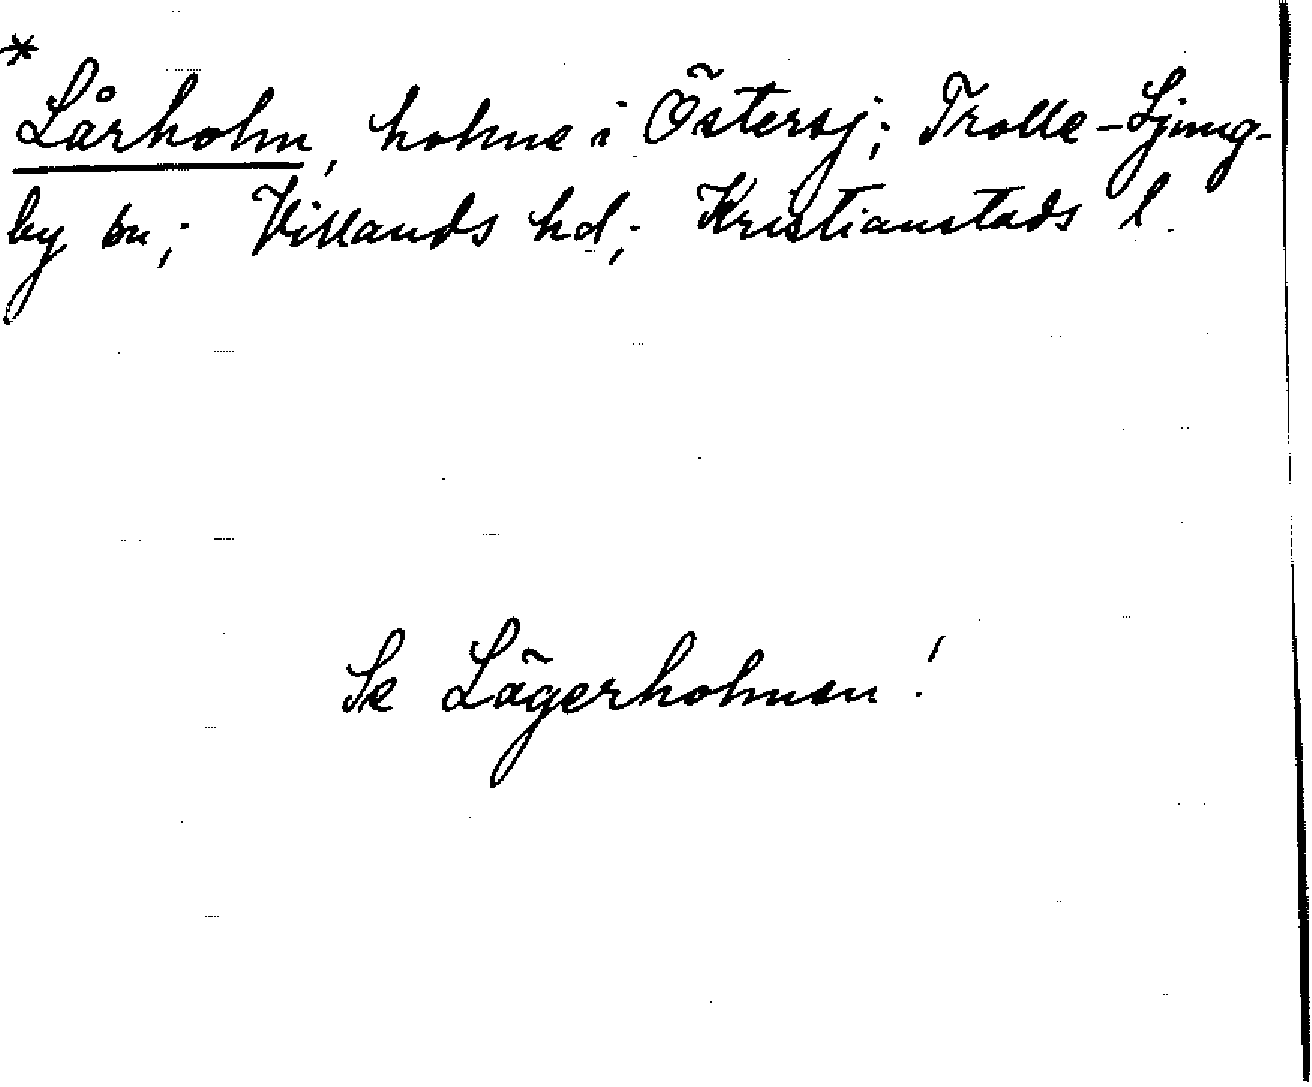 * Lårholm, holme i Östersj; Trolle-Ljung-
by sn; Villands hd; Kristianstads l.
Se Lägerholmen!